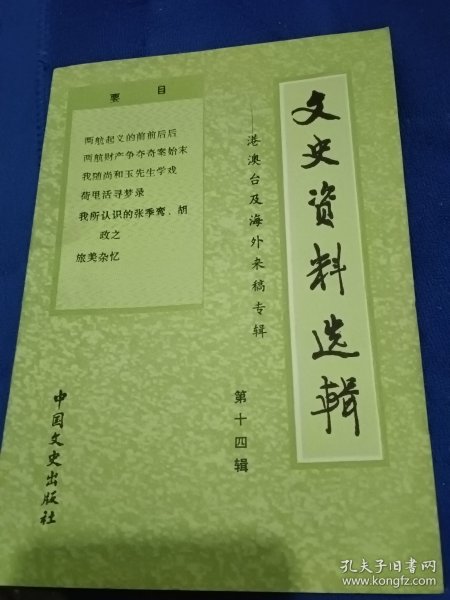 文史资料选辑
——港澳台及海外来稿专辑
第十四辑
要目
两航起义的前前后后
两航财产争夺奇案始末
我随尚和玉先生学戏
荷里活寻梦录
我所认识的张季鸾、胡
政之
旅美杂忆
中国文史出版社
孔夫子旧书网
www.kongfz.com